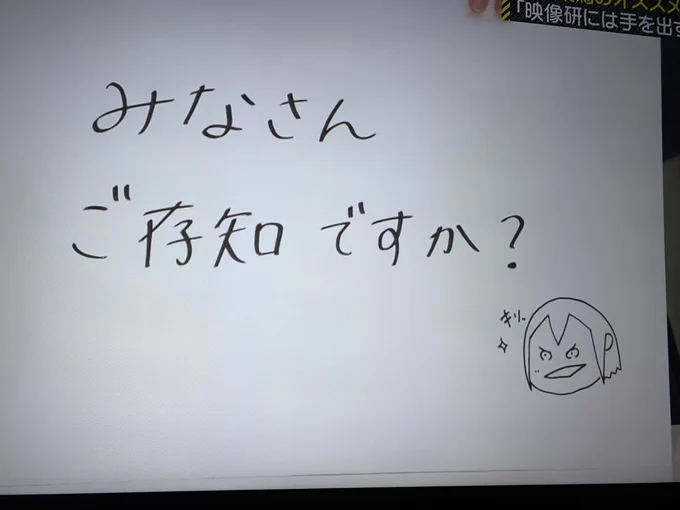 のオススメ
「映像研には手を出す
みなさん
ご存知ですか?
キリッ